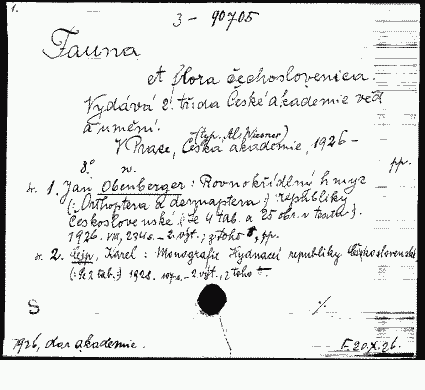 1.
3 - 90705
Fauna
et flora čechoslovenica.
Vydává 2. třída České akademie věd
a umění.
(typ. Al. Wiesner)
V Praze, Česká akademie, 1926 -
8° pp.
1. Jan Obenberger: Rovnokřídlní hmyz
(: Orthoptera a dermaptera :) republiky
Československé (: Se 4 tab. a 25 obr. v textu :).
1926. VIII, 234 s. - 2. výt., z toho pp.
2. Cejp, Karel: Monografie Hydnaceí republiky Československé
(: Se 2 tab. :) 1928. - 2. výt., z toho
S
%
1926, dar akademie.
F. 20.X.26.